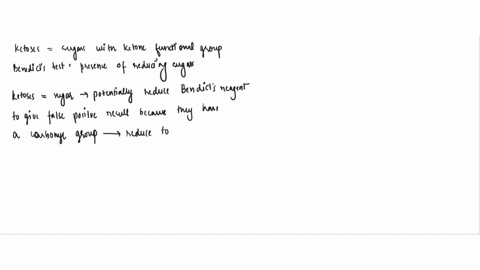 Ketoses = sugars with ketone functional group
Benedict's test = presence of reducing sugars
Ketoses = sugar → potentially reduce Bendict's reagent
to give false positive result because they have
a carbonyl group → reduce to